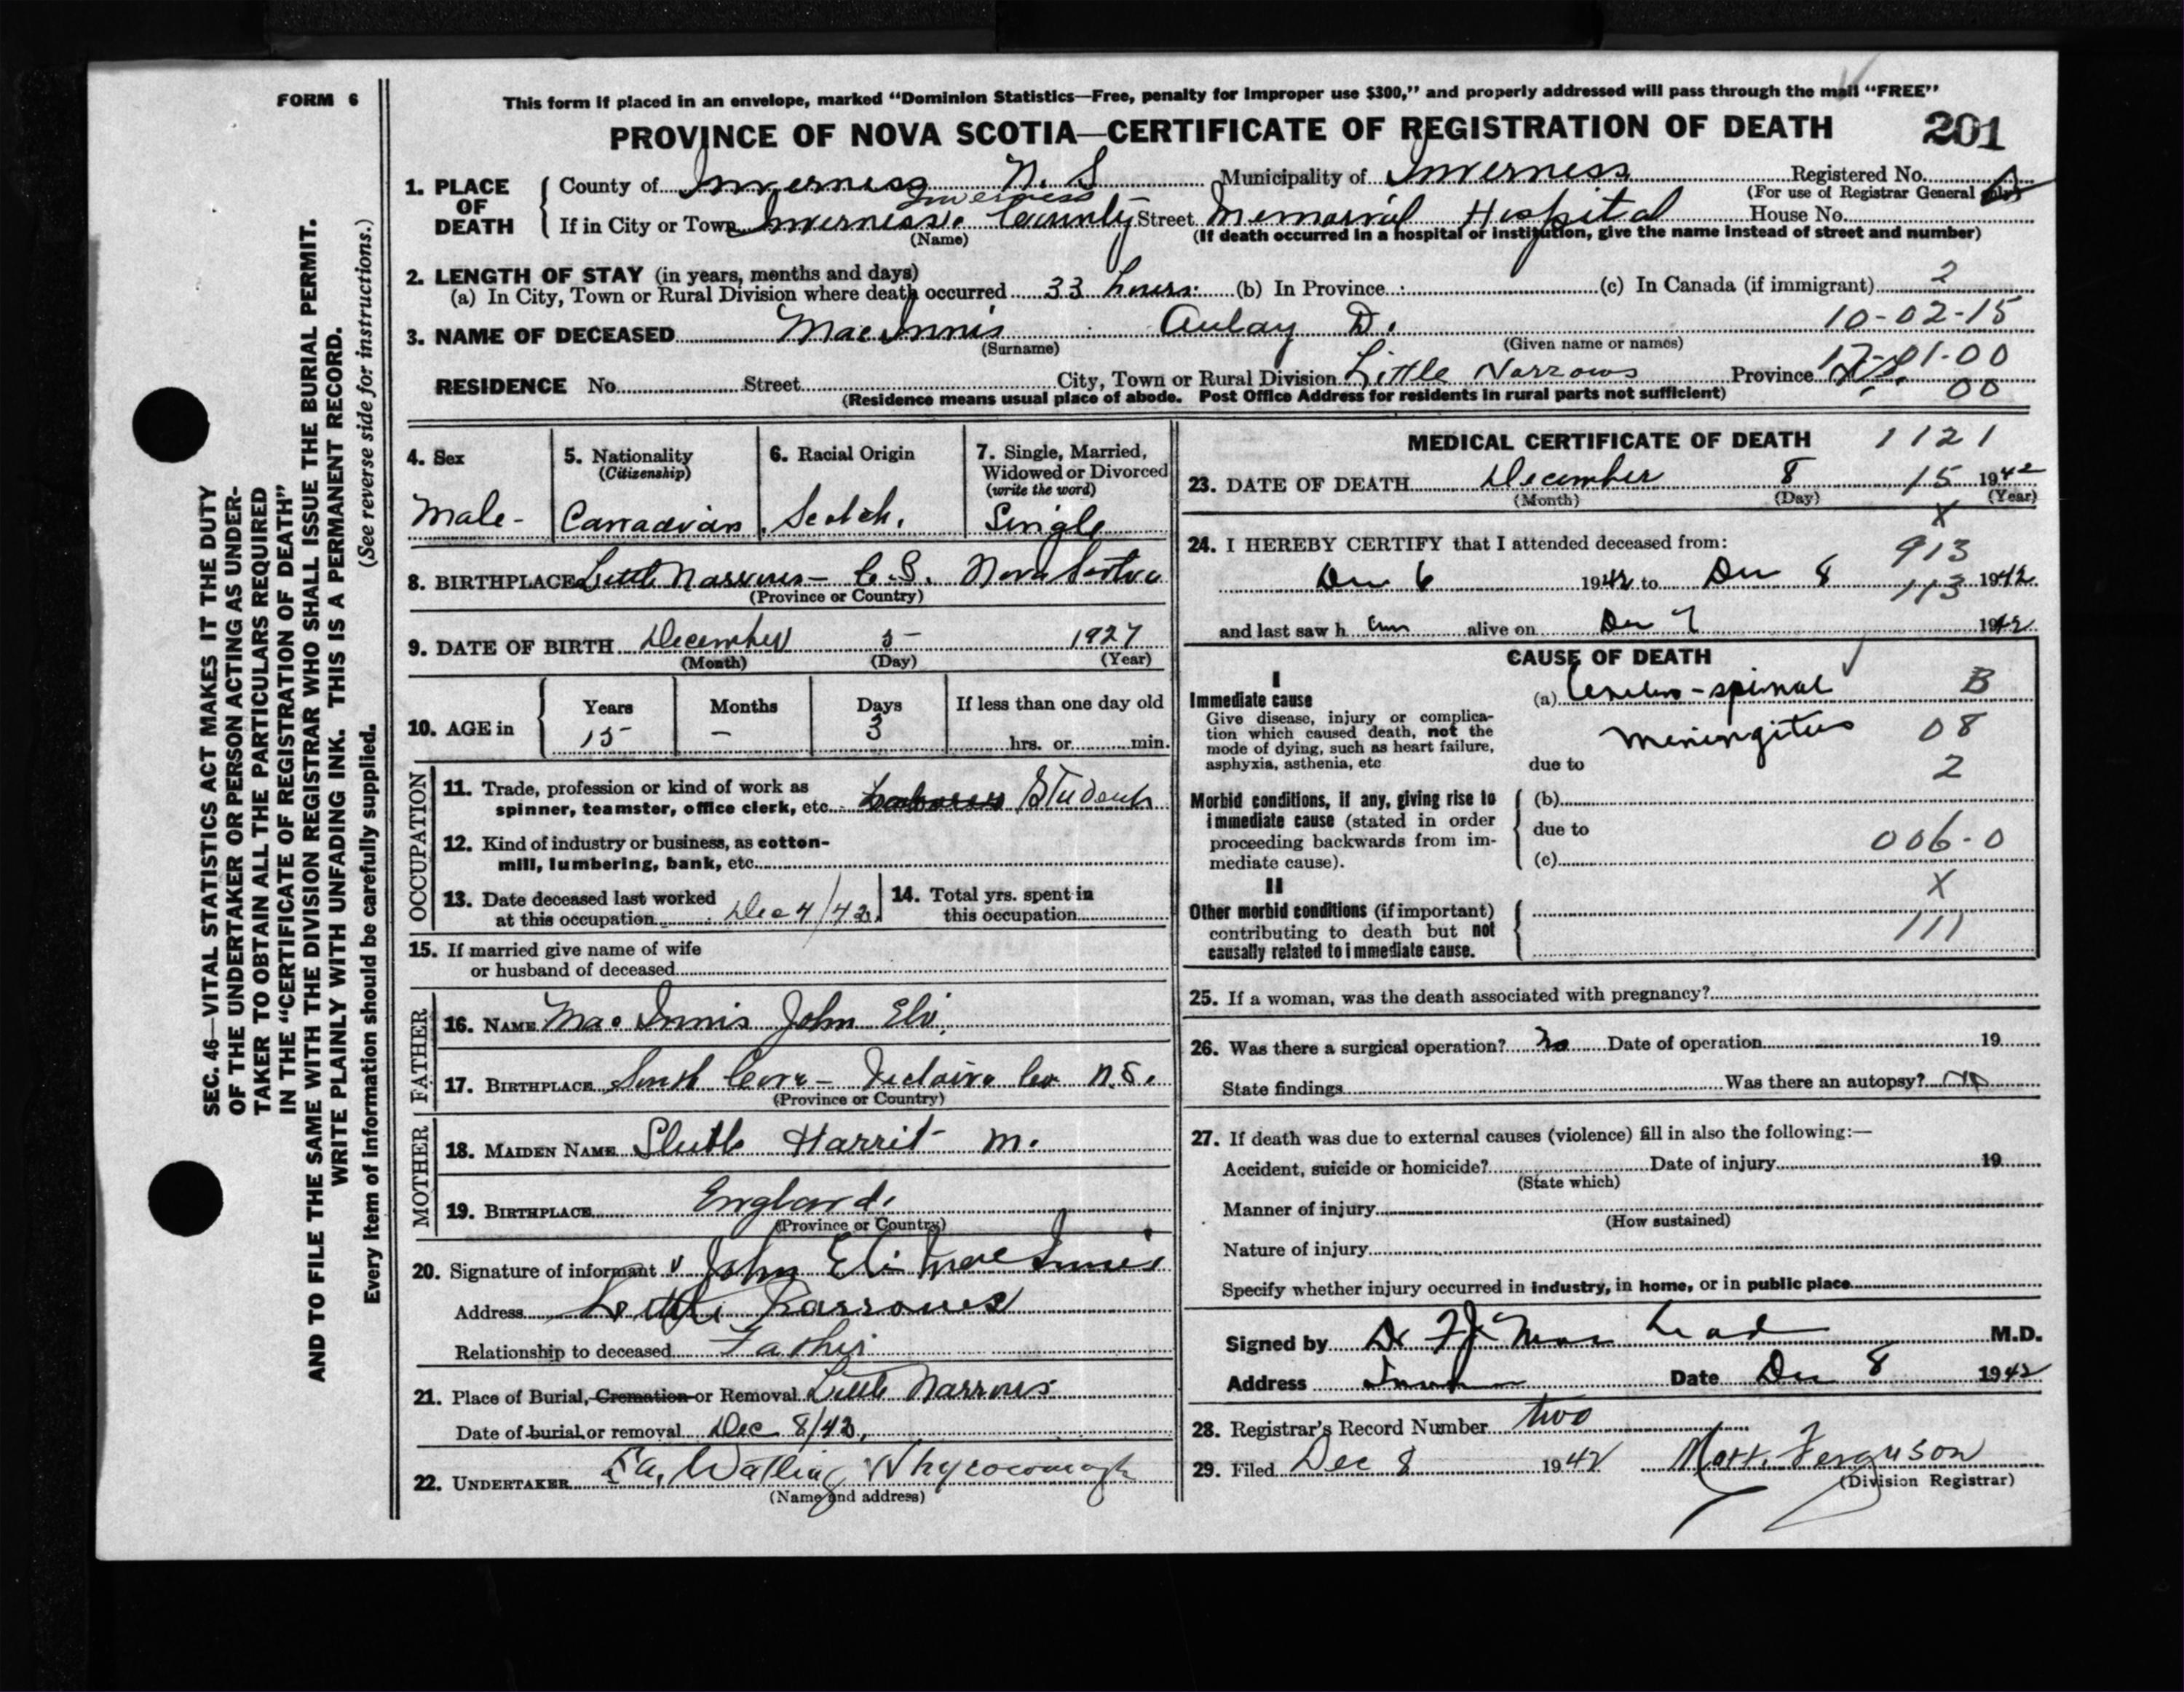 FORM 6
This form if placed in an envelope, marked “Dominion Statistics—Free, penalty for improper use $300,” and properly addressed will pass through the mail “FREE”
PROVINCE OF NOVA SCOTIA—CERTIFICATE OF REGISTRATION OF DEATH
201
1. PLACE OF DEATH
County of Inverness N. S Municipality of Inverness Registered No.
(For use of Registrar General only)
Inverness
If in City or Town Inverness. County Street Memorial Hospital House No.
(Name) (If death occurred in a hospital or institution, give the name instead of street and number)
2. LENGTH OF STAY (in years, months and days)
(a) In City, Town or Rural Division where death occurred 33 hours. (b) In Province (c) In Canada (if immigrant) 2
10-02-15
3. NAME OF DECEASED MacInnis Aulay D.
(Surname) (Given name or names)
17-01-00
RESIDENCE No. Street City, Town or Rural Division Little Narrows Province N.S. 00
(Residence means usual place of abode. Post Office Address for residents in rural parts not sufficient)
4. Sex
Male-
5. Nationality
(Citizenship)
Canadian
6. Racial Origin
Scotch.
7. Single, Married,
Widowed or Divorced
(write the word)
Single
8. BIRTHPLACE Little Narrows- C.B. Nova Scotia
(Province or Country)
9. DATE OF BIRTH December 5 1927
(Month) (Day) (Year)
10. AGE in
Years Months Days If less than one day old
15 - 3 hrs. or min.
OCCUPATION
11. Trade, profession or kind of work as
spinner, teamster, office clerk, etc. Student
12. Kind of industry or business, as cotton-
mill, lumbering, bank, etc.
13. Date deceased last worked
at this occupation Dec 4/42.
14. Total yrs. spent in
this occupation
15. If married give name of wife
or husband of deceased
FATHER
16. NAME MacInnis John Eli
17. BIRTHPLACE South Cove- Victoria Co N.S.
(Province or Country)
MOTHER
18. MAIDEN NAME Harrit M.
19. BIRTHPLACE England.
(Province or Country)
20. Signature of informant John Eli MacInnis
Address Little Narrows
Relationship to deceased Father
21. Place of Burial, Cremation or Removal Little Narrows
Date of burial or removal Dec 8/42.
22. UNDERTAKER Whycocomagh
(Name and address)
MEDICAL CERTIFICATE OF DEATH 1121
23. DATE OF DEATH December 8 15 1942
(Month) (Day) (Year)
X
24. I HEREBY CERTIFY that I attended deceased from: 913
Dec 6 1942 to Dec 8 113 1942
and last saw h im alive on Dec 7 1942
CAUSE OF DEATH
I
Immediate cause
Give disease, injury or complica-
tion which caused death, not the
mode of dying, such as heart failure,
asphyxia, asthenia, etc
(a) Cerebro-spinal B
Meningitis 08
due to 2
Morbid conditions, if any, giving rise to
immediate cause (stated in order
proceeding backwards from im-
mediate cause).
(b)
due to
006-0
(c)
X
II
Other morbid conditions (if important)
contributing to death but not
causally related to immediate cause.
111
25. If a woman, was the death associated with pregnancy?
26. Was there a surgical operation? No Date of operation 19
State findings Was there an autopsy? No
27. If death was due to external causes (violence) fill in also the following:—
Accident, suicide or homicide? Date of injury 19
(State which)
Manner of injury
(How sustained)
Nature of injury
Specify whether injury occurred in industry, in home, or in public place
Signed by Dr FJ Mac Leod M.D.
Address Date Dec 8 1942
28. Registrar's Record Number two
29. Filed Dec 8 1942 Matt. Ferguson
(Division Registrar)
SEC. 46—VITAL STATISTICS ACT MAKES IT THE DUTY
OF THE UNDERTAKER OR PERSON ACTING AS UNDER-
TAKER TO OBTAIN ALL THE PARTICULARS REQUIRED
IN THE “CERTIFICATE OF REGISTRATION OF DEATH”
AND TO FILE THE SAME WITH THE DIVISION REGISTRAR WHO SHALL ISSUE THE BURIAL PERMIT.
WRITE PLAINLY WITH UNFADING INK. THIS IS A PERMANENT RECORD.
Every item of information should be carefully supplied. (See reverse side for instructions.)